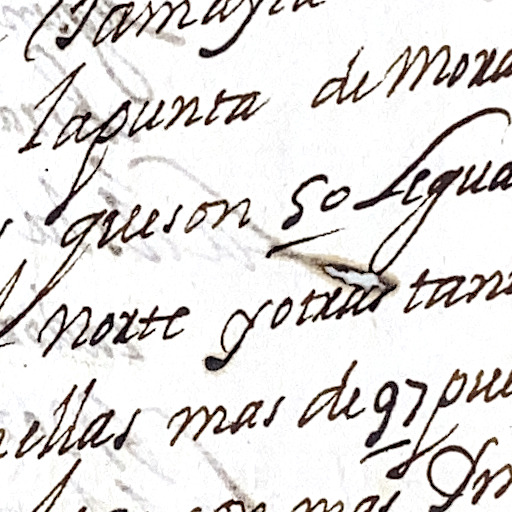 la punta de Mora
que son 50 legua
norte y otras tan
ellas mas de 97 pue
mas